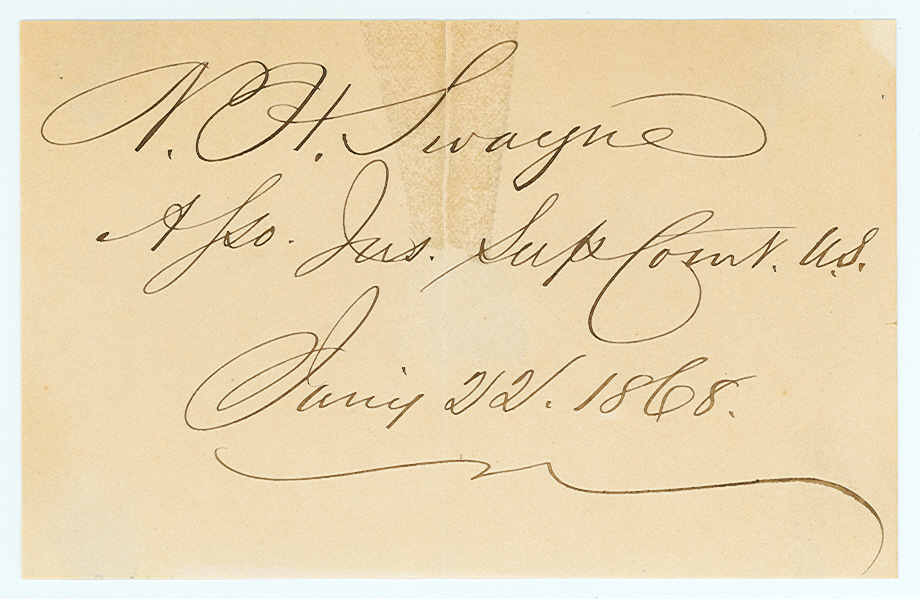 N. H. Swayne
Asso. Jus. Sup Court. U.S.
Jany 22. 1868.